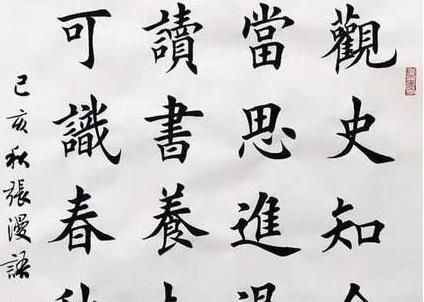 觀史知今
當思進退
讀書養
可識春秋
己亥秋張漫語